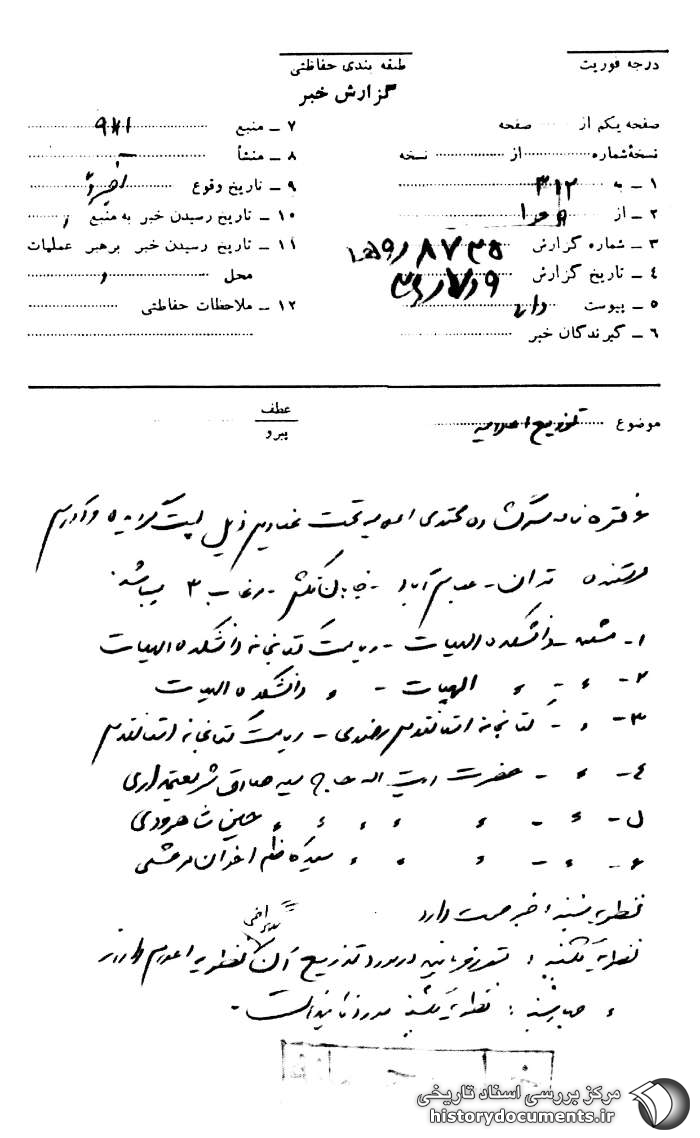 درجه فوریت
طبقه بندی حفاظتی
گزارش خبر
صفحه یکم از صفحه
نسخهٔ شماره از نسخه
۱ ـ به ۳۱۲
۲ ـ از
۳ ـ شماره گزارش
۴ ـ تاریخ گزارش
۵ ـ پیوست دارد
۶ ـ گیرندگان خبر
۷ ـ منبع ۹۷۱
۸ ـ منشأ
۹ ـ تاریخ وقوع اخیراً
۱۰ ـ تاریخ رسیدن خبر به منبع
۱۱ ـ تاریخ رسیدن خبر برهبر عملیات
محل
۱۲ ـ ملاحظات حفاظتی
موضوع توزیع اعلامیه
عطف
پیرو
۶ فقره نامه سرگشاده تحت عناوین ذیل پست گردیده و آدرس
فرستنده تهران ـ عباس آباد ـ خیابان ۳ میباشد.
۱ـ مشهد ـ دانشکده الهیات ـ ریاست کتابخانه دانشکده الهیات
۲ـ " ـ " الهیات ـ " دانشکده الهیات
۳ـ " ـ کتابخانه آستانقدس رضوی ـ ریاست کتابخانه آستانقدس
۴ـ " ـ حضرت آیت اله حاج سید صادق شریعتمداری
۵ـ " ـ " " " " حسین شاهرودی
۶ـ " ـ " " " سید کاظم اخوان مرعشی
نظریه شنبه : خبر صحت دارد
نظریه یکشنبه : در مورد توزیع آن نظریه اعلام دارند
" چهارشنبه : نظریه یکشنبه مورد تائید است ـ
مرکز بررسی اسناد تاریخی
historydocuments.ir